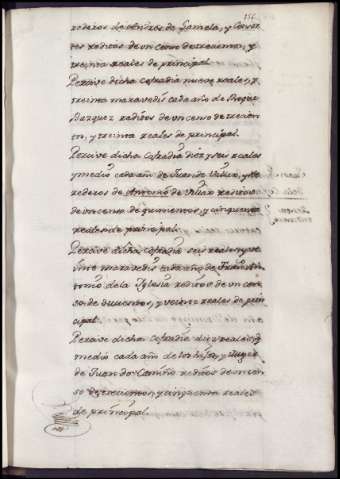 rederos de Andres de Gamela, y Consortes
reditos de un censo de trecientos, y
treinta reales de principal.
Percive dicha cofradia nueve reales, y
treinta maravedis cada año de
Bazquez reditos de un censo de trecientos,
y treinta reales de principal.
Percive dicha Cofradia diez y seis reales
y medio cada año de Juan de, y herederos
de Antonio de Villar reditos
de un censo de quinientos, y cinquenta
reales de principal.
Percive dicha Cofradia seis reales, y veinte
maravedis cada año de Juan Antonio
de la Iglesia reditos de un censo
de ducientos, y veinte reales de principal.
Percive dicha Cofradia diez reales, y
medio cada año de los hijos, y muger
de Juan do Camiño reditos de un censo
de trecientos, y cinquenta reales
de principal.